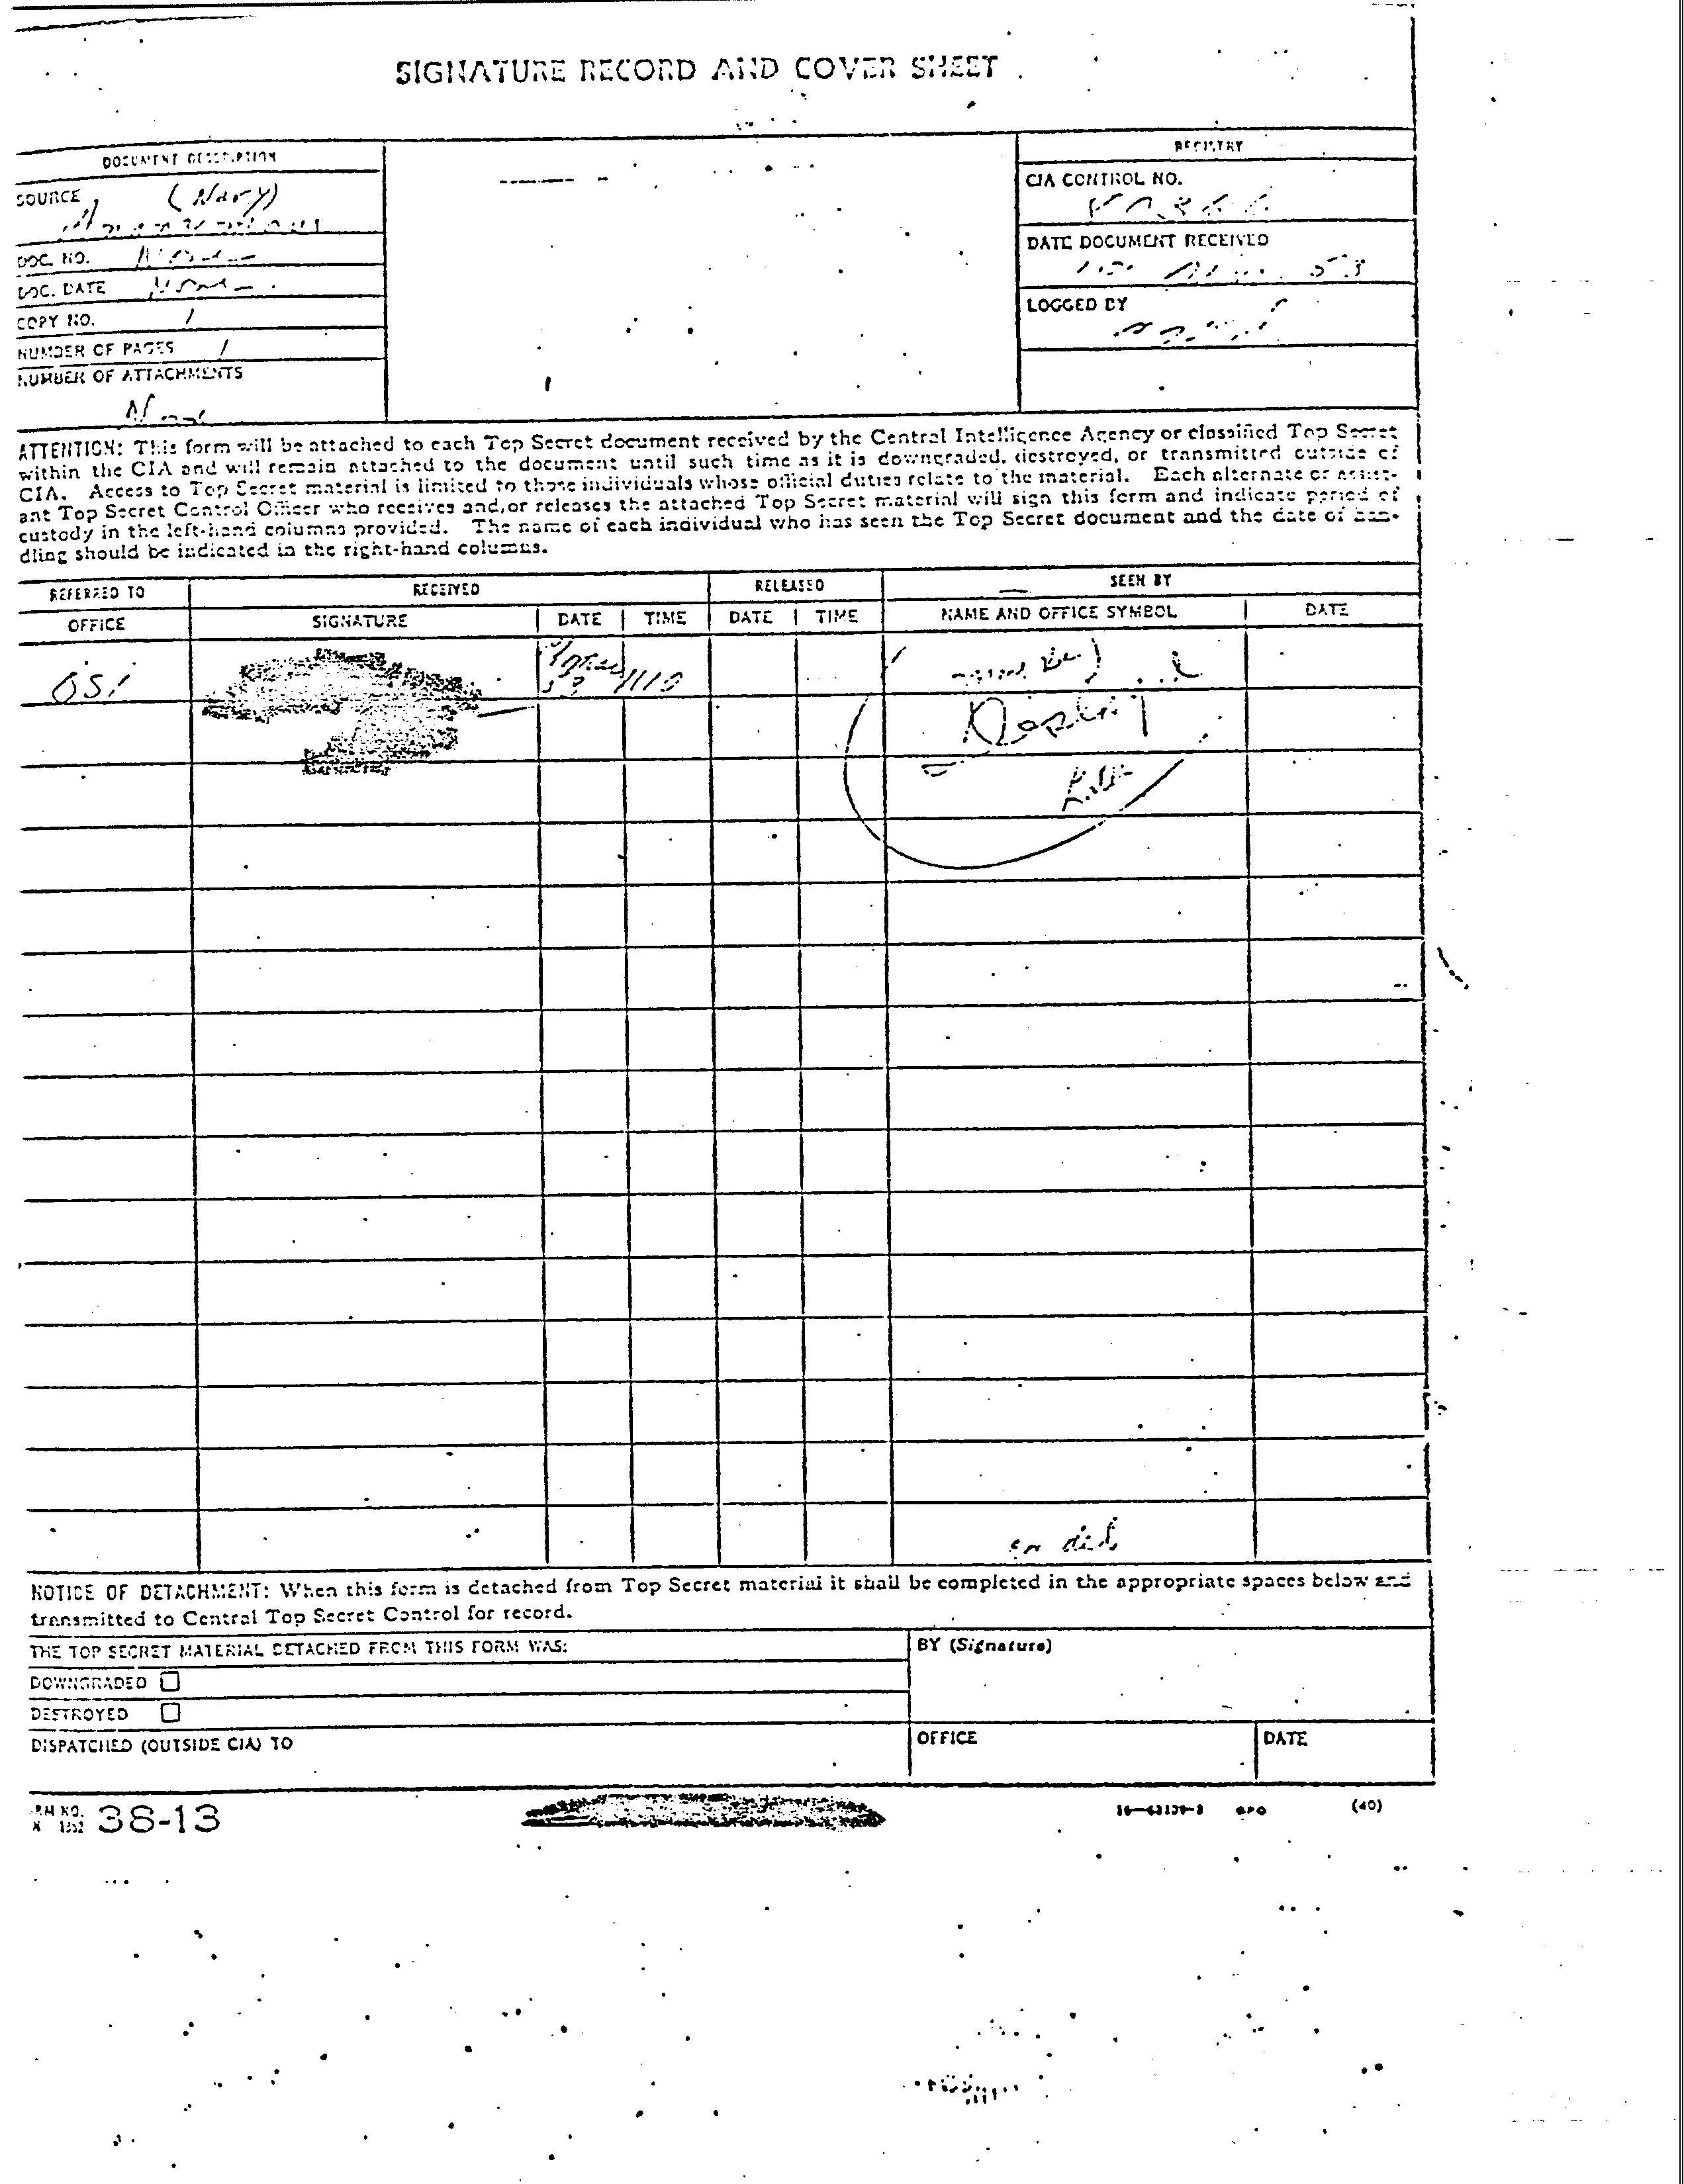 SIGNATURE RECORD AND COVER SHEET
DOCUMENT DESCRIPTION
SOURCE (Navy)
DOC. NO. None
DOC. DATE None
COPY NO. 1
NUMBER OF PAGES 1
NUMBER OF ATTACHMENTS
None
REGISTRY
CIA CONTROL NO.
DATE DOCUMENT RECEIVED
53
LOGGED BY
ATTENTION: This form will be attached to each Top Secret document received by the Central Intelligence Agency or classified Top Secret
within the CIA and will remain attached to the document until such time as it is downgraded, destroyed, or transmitted outside of
CIA. Access to Top Secret material is limited to those individuals whose official duties relate to the material. Each alternate or assist-
ant Top Secret Control Officer who receives and/or releases the attached Top Secret material will sign this form and indicate period of
custody in the left-hand columns provided. The name of each individual who has seen the Top Secret document and the date of han-
dling should be indicated in the right-hand columns.
REFERRED TO RECEIVED RELEASED SEEN BY
OFFICE SIGNATURE DATE TIME DATE TIME NAME AND OFFICE SYMBOL DATE
OSI 1110
NOTICE OF DETACHMENT: When this form is detached from Top Secret material it shall be completed in the appropriate spaces below and
transmitted to Central Top Secret Control for record.
THE TOP SECRET MATERIAL DETACHED FROM THIS FORM WAS:
BY (Signature)
DOWNGRADED
DESTROYED
DISPATCHED (OUTSIDE CIA) TO
OFFICE
DATE
38-13
GPO
(40)